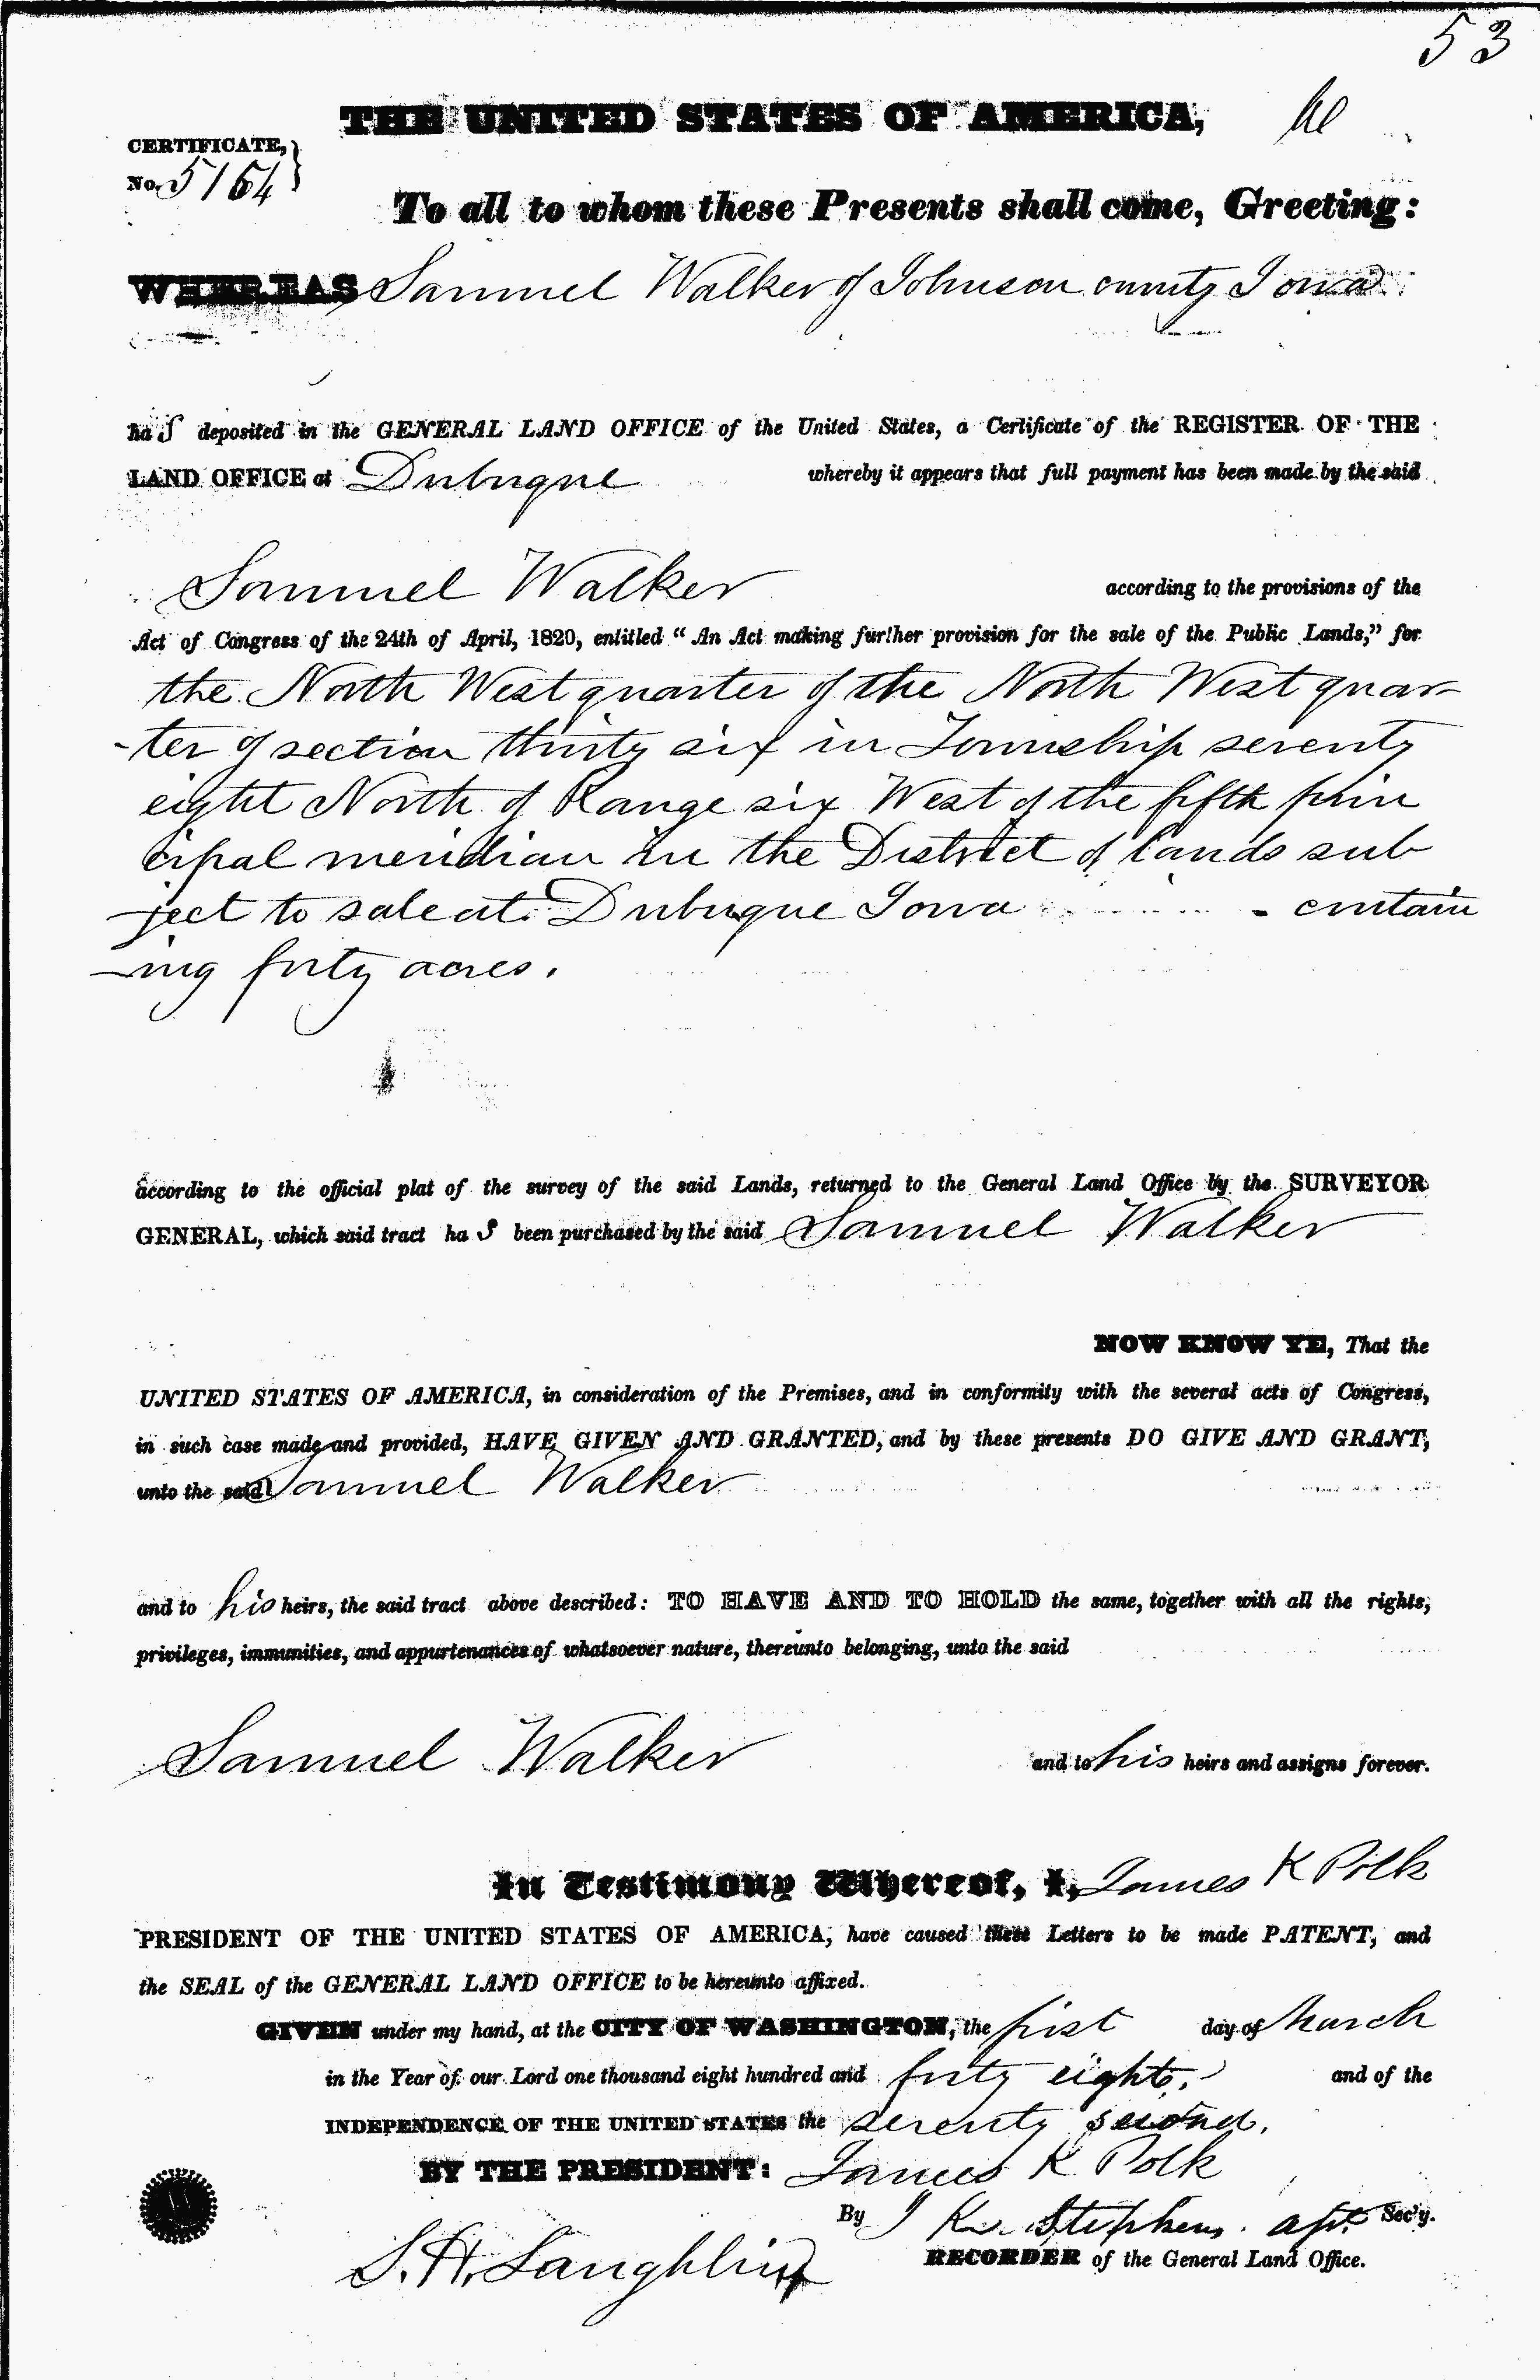 53
THE UNITED STATES OF AMERICA,
CERTIFICATE,
No. 5164
To all to whom these Presents shall come, Greeting:
WHEREAS Samuel Walker of Johnson county Iowa
ha s deposited in the GENERAL LAND OFFICE of the United States, a Certificate of the REGISTER OF THE
LAND OFFICE at Dubuque whereby it appears that full payment has been made by the said
Samuel Walker according to the provisions of the
Act of Congress of the 24th of April, 1820, entitled “ An Act making further provision for the sale of the Public Lands,” for
the North West quarter of the North West quar
-ter of section thirty six in Township seventy
eight North of Range six West of the fifth prin
cipal meridian in the District of lands sub
-ject to sale at Dubuque Iowa - contain
-ing forty acres.
according to the official plat of the survey of the said Lands, returned to the General Land Office by the SURVEYOR
GENERAL, which said tract ha s been purchased by the said Samuel Walker
NOW KNOW YE, That the
UNITED STATES OF AMERICA, in consideration of the Premises, and in conformity with the several acts of Congress,
in such case made and provided, HAVE GIVEN AND GRANTED, and by these presents DO GIVE AND GRANT,
unto the said Samuel Walker
and to his heirs, the said tract above described: TO HAVE AND TO HOLD the same, together with all the rights,
privileges, immunities, and appurtenances of whatsoever nature, thereunto belonging, unto the said
Samuel Walker and to his heirs and assigns forever.
In Testimony Whereof, I, James K Polk
PRESIDENT OF THE UNITED STATES OF AMERICA, have caused these Letters to be made PATENT, and
the SEAL of the GENERAL LAND OFFICE to be hereunto affixed.
GIVEN under my hand, at the CITY OF WASHINGTON, the first day of March
in the Year of our Lord one thousand eight hundred and forty eight, and of the
INDEPENDENCE OF THE UNITED STATES the seventy second.
BY THE PRESIDENT: James K Polk
By J K Stephens. Sec'y.
S. H. Laughlin RECORDER of the General Land Office.